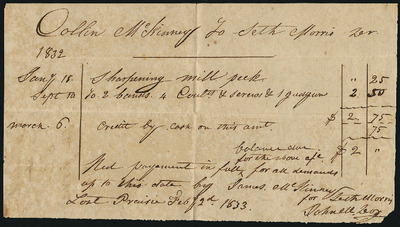 Collin McKinney To Seth Morris Dr
1832
Jany 18 Sharpening mill peck " 25
Sept 10 To 2 bands 4 Coults & screws & 1 gudgeon 2 50
$ 2 75
march 6 Credit by cash on this amt. 75
balance due $ 2 "
for the above afc
Recd payment in full for all demands
up to this date by James McKinney
Lost Prairie Feby 2d 1833. for Seth Morris
John